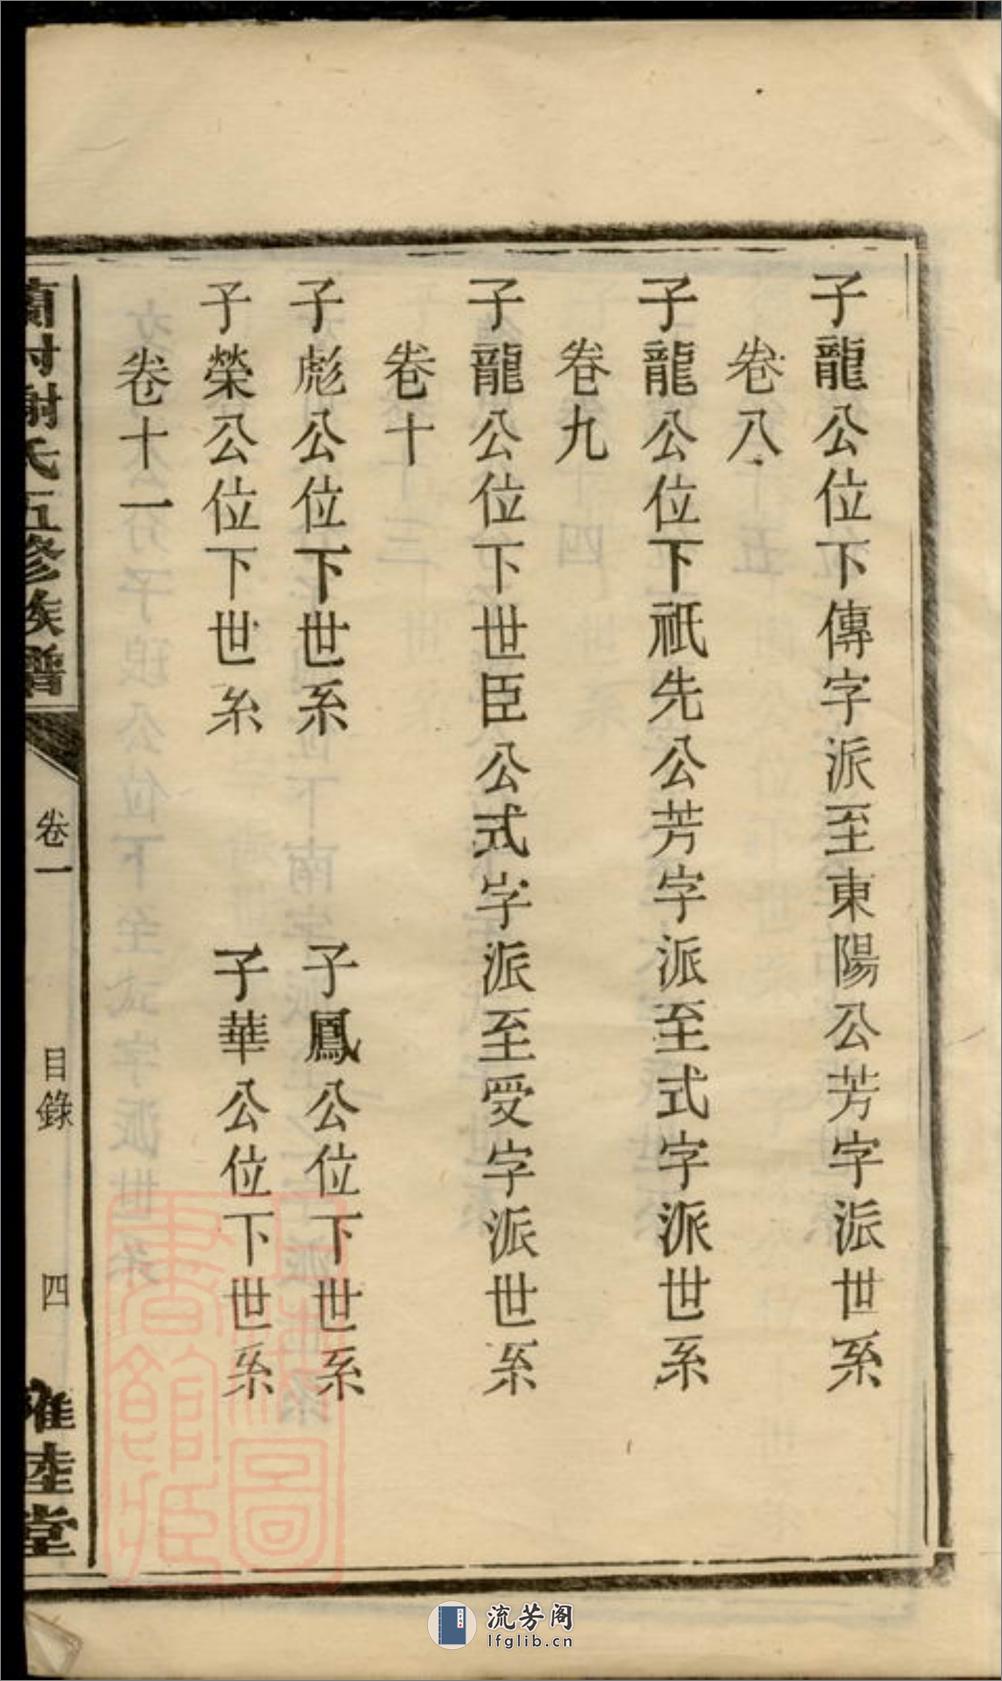 子龍公位下傳字派至東陽公芳字派世系
卷八
子龍公位下祇先公芳字派至式字派世系
卷九
子龍公位下世臣公式字派至受字派世系
卷十
子彪公位下世系 子鳳公位下世系
子榮公位下世系 子華公位下世系
卷十一
謝氏五修族譜 卷一 目錄 四 雍睦堂
流芳阁
lfglib.cn